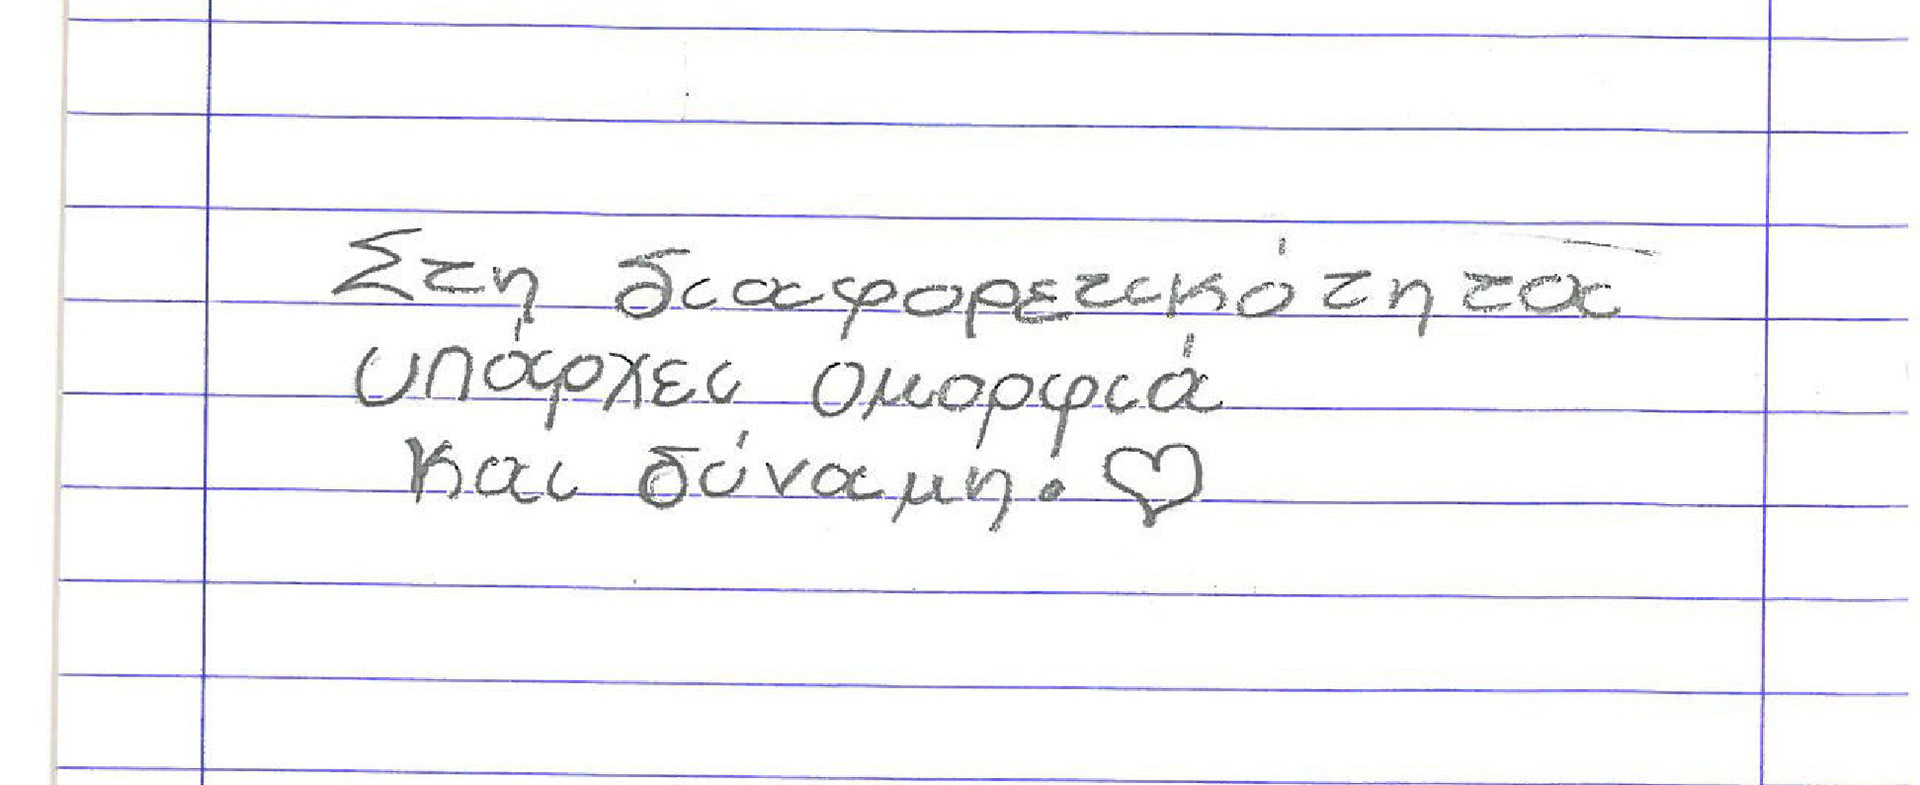 Στη διαφορετικότητα
υπάρχει ομορφιά
και δύναμη. ♡